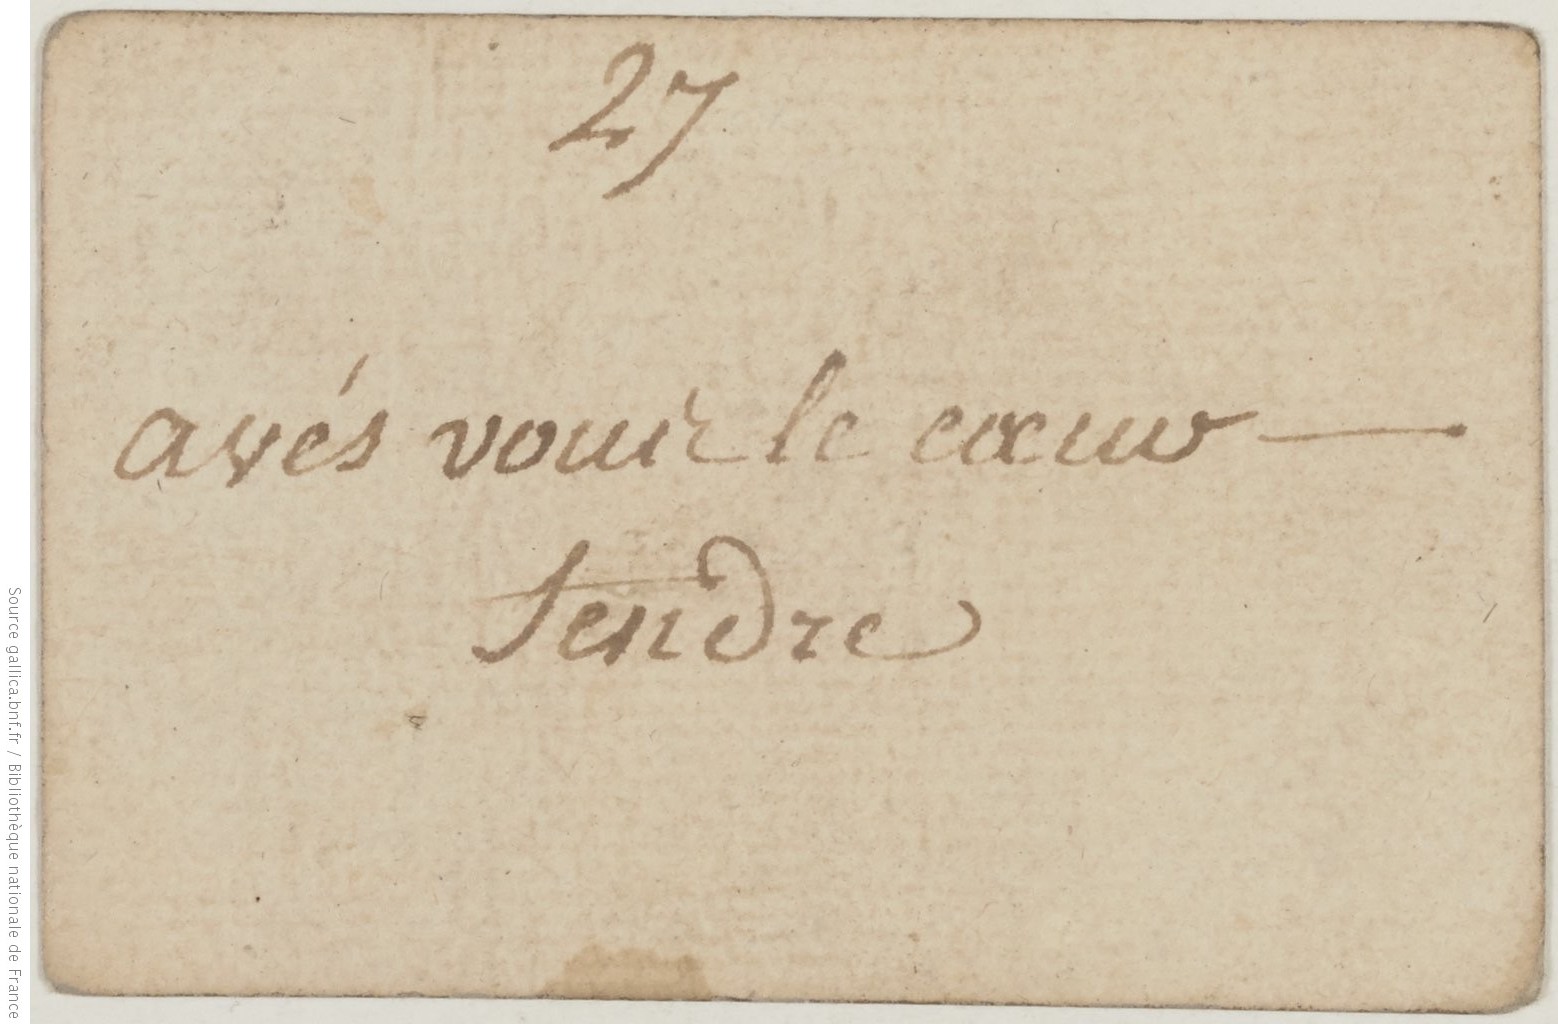 27
avés vous le cœur —
tendre
Source gallica.bnf.fr / Bibliothèque nationale de France